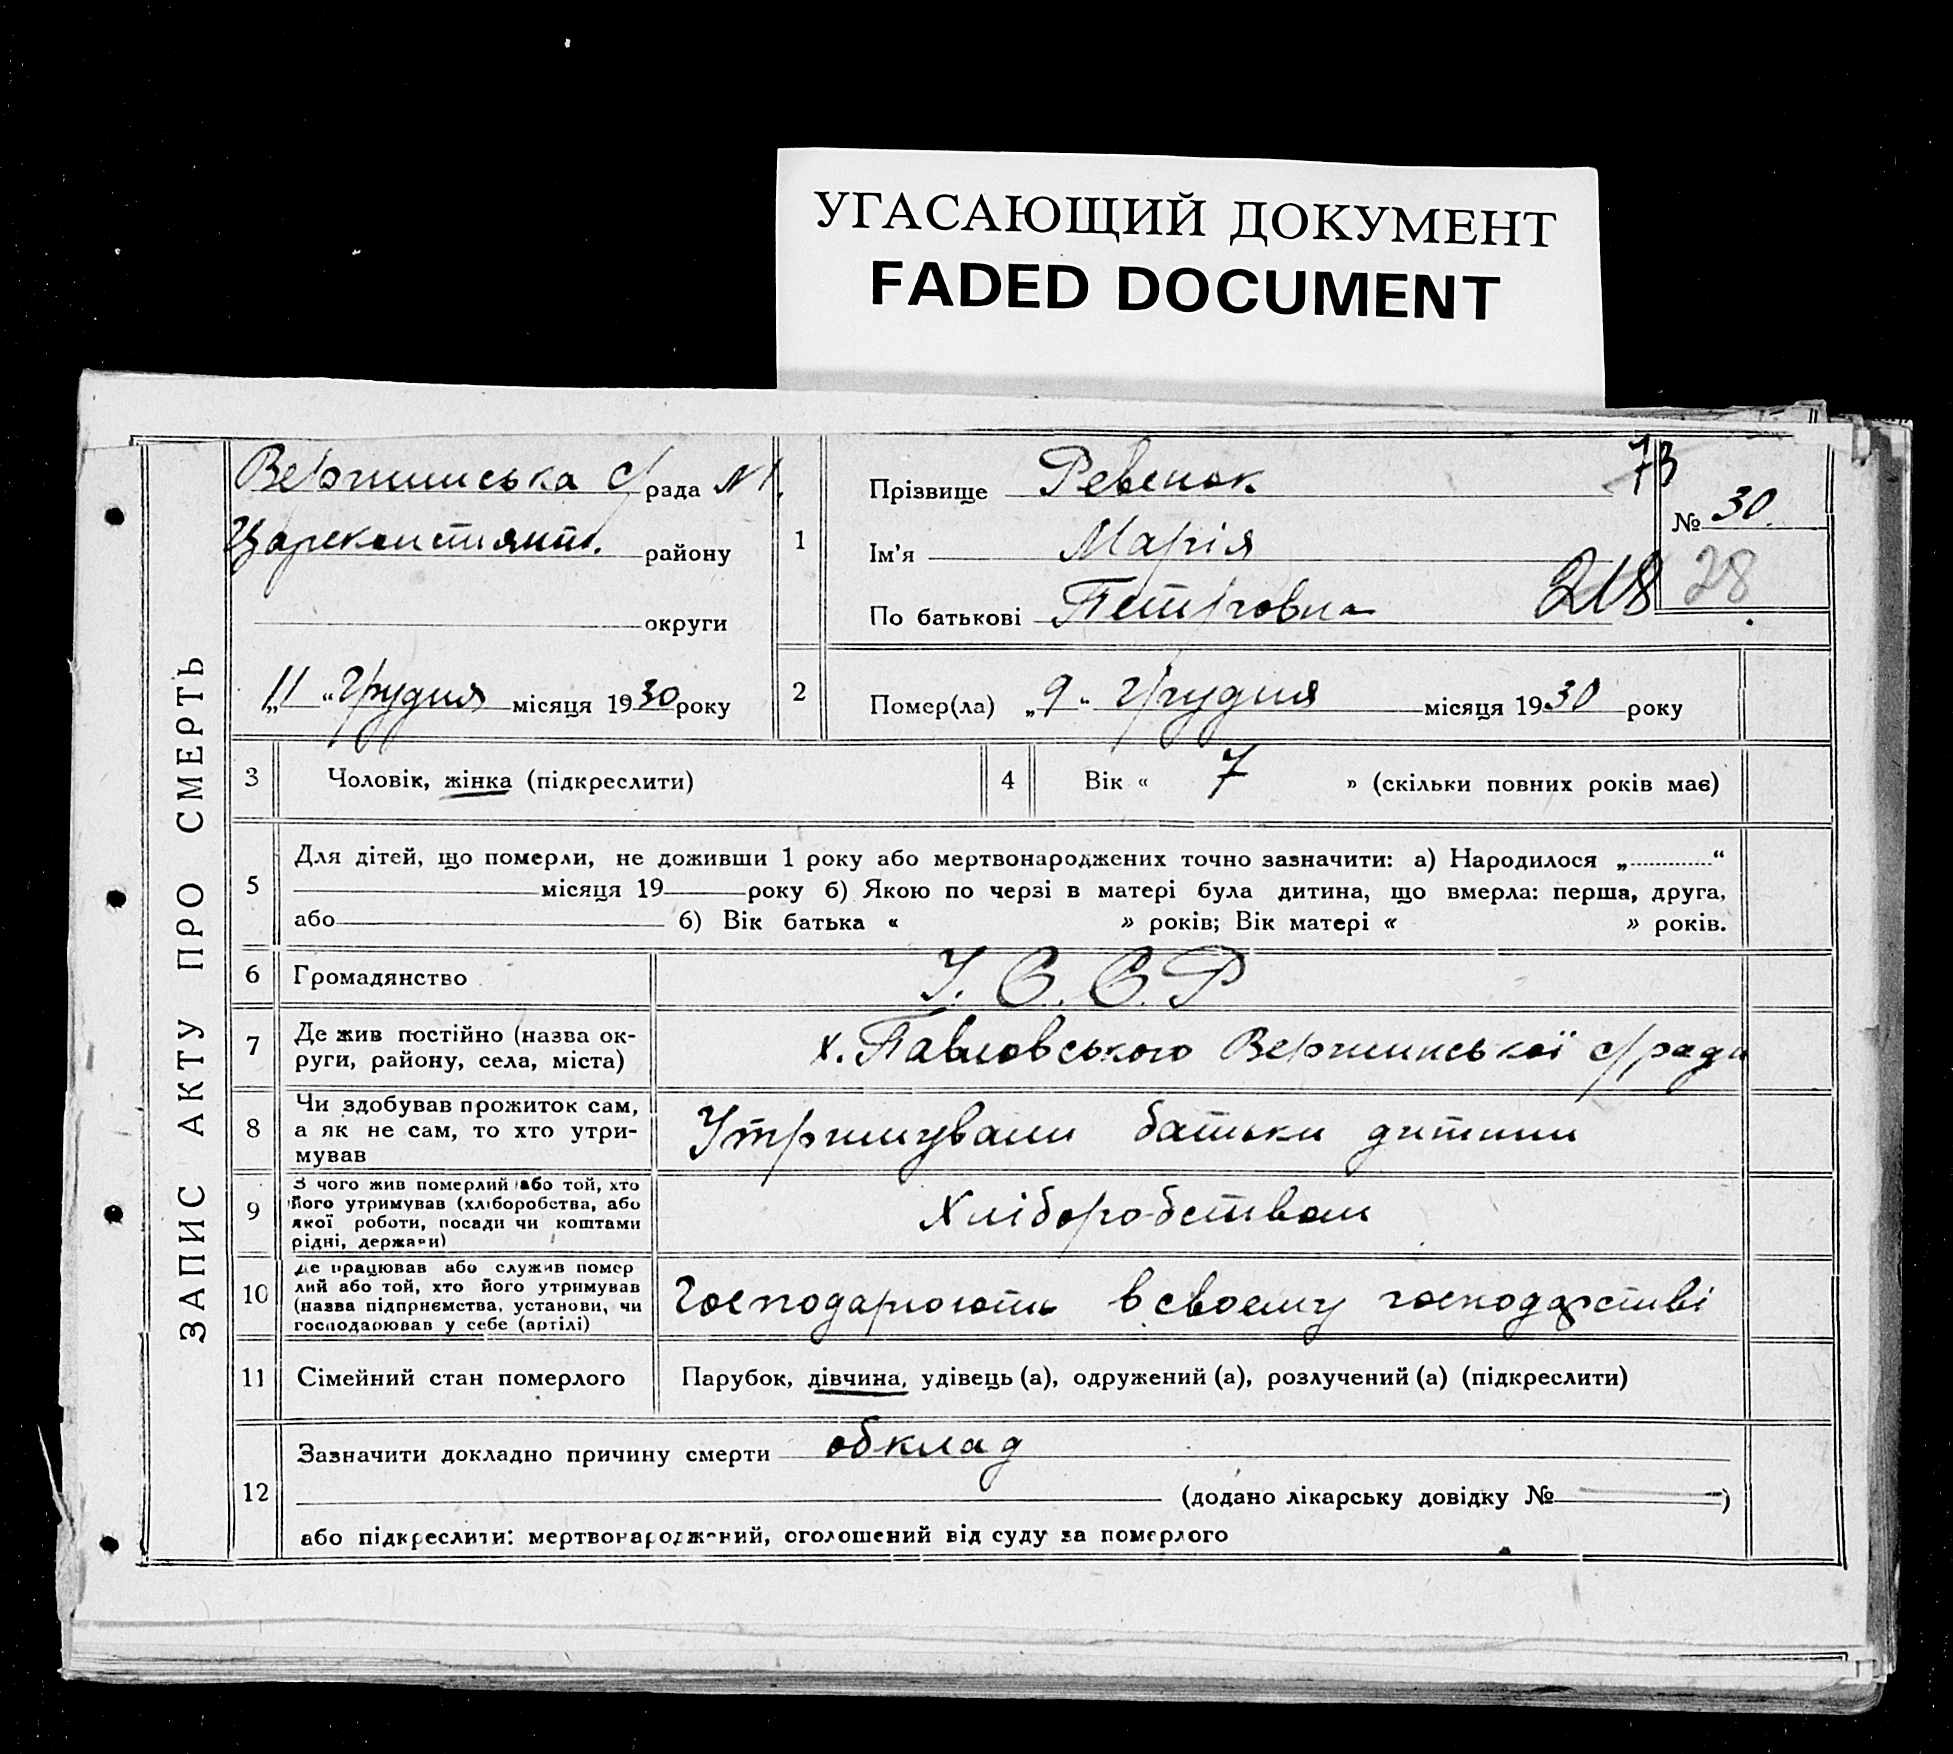 УГАСАЮЩИЙ ДОКУМЕНТ
FADED DOCUMENT
ЗАПИС АКТУ ПРО СМЕРТЬ
Вершинська с/рада №1.
Царекон району
округи
„11“ Грудня місяця 1930 року
1
Прізвище Ревенок
Ім'я Марія
По батькові Петровна
73
№ 30.
218
28
2
Помер(ла) „9“ Грудня місяця 1930 року
3
Чоловік, жінка (підкреслити)
4
Вік « 7 » (скільки повних років має)
5
Для дітей, що померли, не доживши 1 року або мертвонароджених точно зазначити: а) Народилося „ “
місяця 19 року б) Якою по черзі в матері була дитина, що вмерла: перша, друга,
або б) Вік батька « » років; Вік матері « » років.
6
Громадянство
У.С.С.Р
7
Де жив постійно (назва ок-
руги, району, села, міста)
х. Павловського Вершинської с/ради
8
Чи здобував прожиток сам,
а як не сам, то хто утри-
мував
Утримували батьки дитини
9
З чого жив померлий або той, хто
його утримував (хліборобства, або
якої роботи, посади чи коштами
рідні, держави)
Хліборобством
10
Де працював або служив помер
лий або той, хто його утримував
(назва підприємства, установи, чи
господарював у себе (артілі)
Господарюють в своему господарстві
11
Сімейний стан померлого
Парубок, дівчина, удівець (а), одружений (а), розлучений (а) (підкреслити)
12
Зазначити докладно причину смерти обклад
(додано лікарську довідку № )
або підкреслити: мертвонароджений, оголошений від суду за померлого